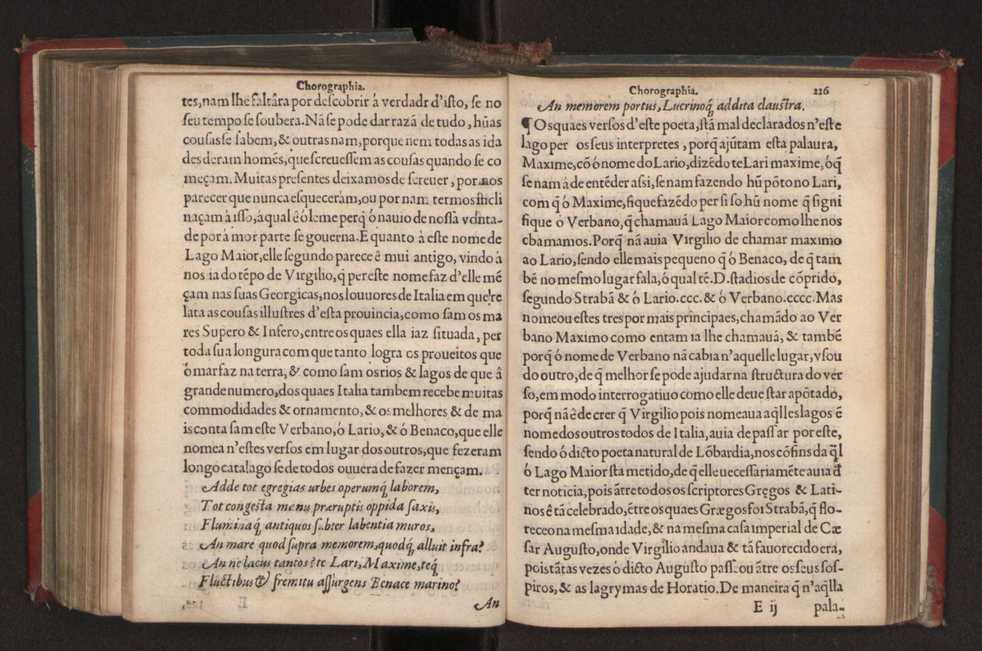 Chorographia.
tes, nam lhe faltâra por descobrir á verdadr d'isto, se no
seu tempo se soubera. Nã se pode dar razã de tudo, hũas
cousas se sabem, & outras nam, porque nem todas as ida
des deram homẽs, que screuessem as cousas quando se co
meçam. Muitas presentes deixamos de screuer, por nos
parecer que nunca esquecerám, ou por nam termos ĩcli
naçam à isso, à qual é ó leme perq̃ ó nauio de nossa võnta-
de por á mór parte se gouerna. E quanto à este nome de
Lago Maior, elle segundo parece ê mui antigo, vindo à
nos ia do tẽpo de Virgilio, q̃ per este nome faz d'elle mẽ
çam nas suas Georgicas, nos louuores de Italia em que re
lata as cousas illustres d'esta prouincia, como sam os ma
res Supero & Infero, entre os quaes ella iaz situada, per
toda sua longura com que tanto logra os proueitos que
ó mar faz na terra, & como sam os rios & lagos de que â
grande numero, dos quaes Italia tambem recebe muitas
commodidades & ornamento, & os melhores & de ma
is conta sam este Verbano, ó Lario, & ó Benaco, que elle
nomea n'estes versos em lugar dos outros, que fezeram
longo catalago se de todos ouuera de fazer mençam.
Adde tot egregias urbes operumq́ laborem,
Tot congesta manu præruptis oppida saxis,
Fluminaq́ antiquos subter labentia muros,
An mare quod supra memorem, quodq́ alluit infra?
An ne lacus tantos? te Lari, Maxime, teq́
Fluctibus & fremitu assurgens Benace marino?
An
Chorographia. 226
An memorem portus, Lucrinoq́ addita claustra.
¶ Os quaes versos d'este poeta, stã mal declarados n'este
lago per os seus interpretes, porq̃ ajũtam esta palaura,
Maxime, cõ ó nome do Lario, dizẽdo te Lari maxime, ó q̃
se nam á de entẽder assi, se nam fazendo hũ põto no Lari,
com q̃ ó Maxime, fique fazẽdo per si so hũ nome q̃ signi
fique ó Verbano, q̃ chamauã Lago Maior como lhe nos
chamamos. Porq̃ nã auia Virgilio de chamar maximo
ao Lario, sendo elle mais pequeno q̃ ó Benaco, de q̃ tam
bẽ no mesmo lugar fala, ó qual tẽ. D. stadios de cõprido,
segundo Strabã & ó Lario. ccc. & ó Verbano. cccc. Mas
nomeou estes tres por mais principaes, chamãdo ao Ver
bano Maximo como entam ia lhe chamauã, & tambẽ
porq̃ ó nome de Verbano nã cabia n'aquelle lugar, vsou
do outro, de q̃ melhor se pode ajudar na structura do ver
so, em modo interrogatiuo como elle deue star apõtado,
porq̃ nã è de crer q̃ Virgilio pois nomeaua aq̃lles lagos ẽ
nome dos outros todos de Italia, auia de passar por este,
sendo ó dicto poeta natural de Lõbardia, nos cõfins da q̃l
ó Lago Maior sta metido, de q̃ elle necessariamẽte auia đ
ter noticia, pois ãtre todos os scriptores Gręgos & Lati-
nos ê tã celebrado, ẽtre os quaes Grægos foi Strabã, q̃ flo-
receo na mesma idade, & na mesma casa imperial de Cæ
sar Augusto, onde Virgilio andaua & tã fauorecido era,
pois tãtas vezes ó dicto Augusto passou ãtre os seus sos-
piros, & as lagrymas de Horatio. De maneira q̃ n'aq̃lla
E ij pala-